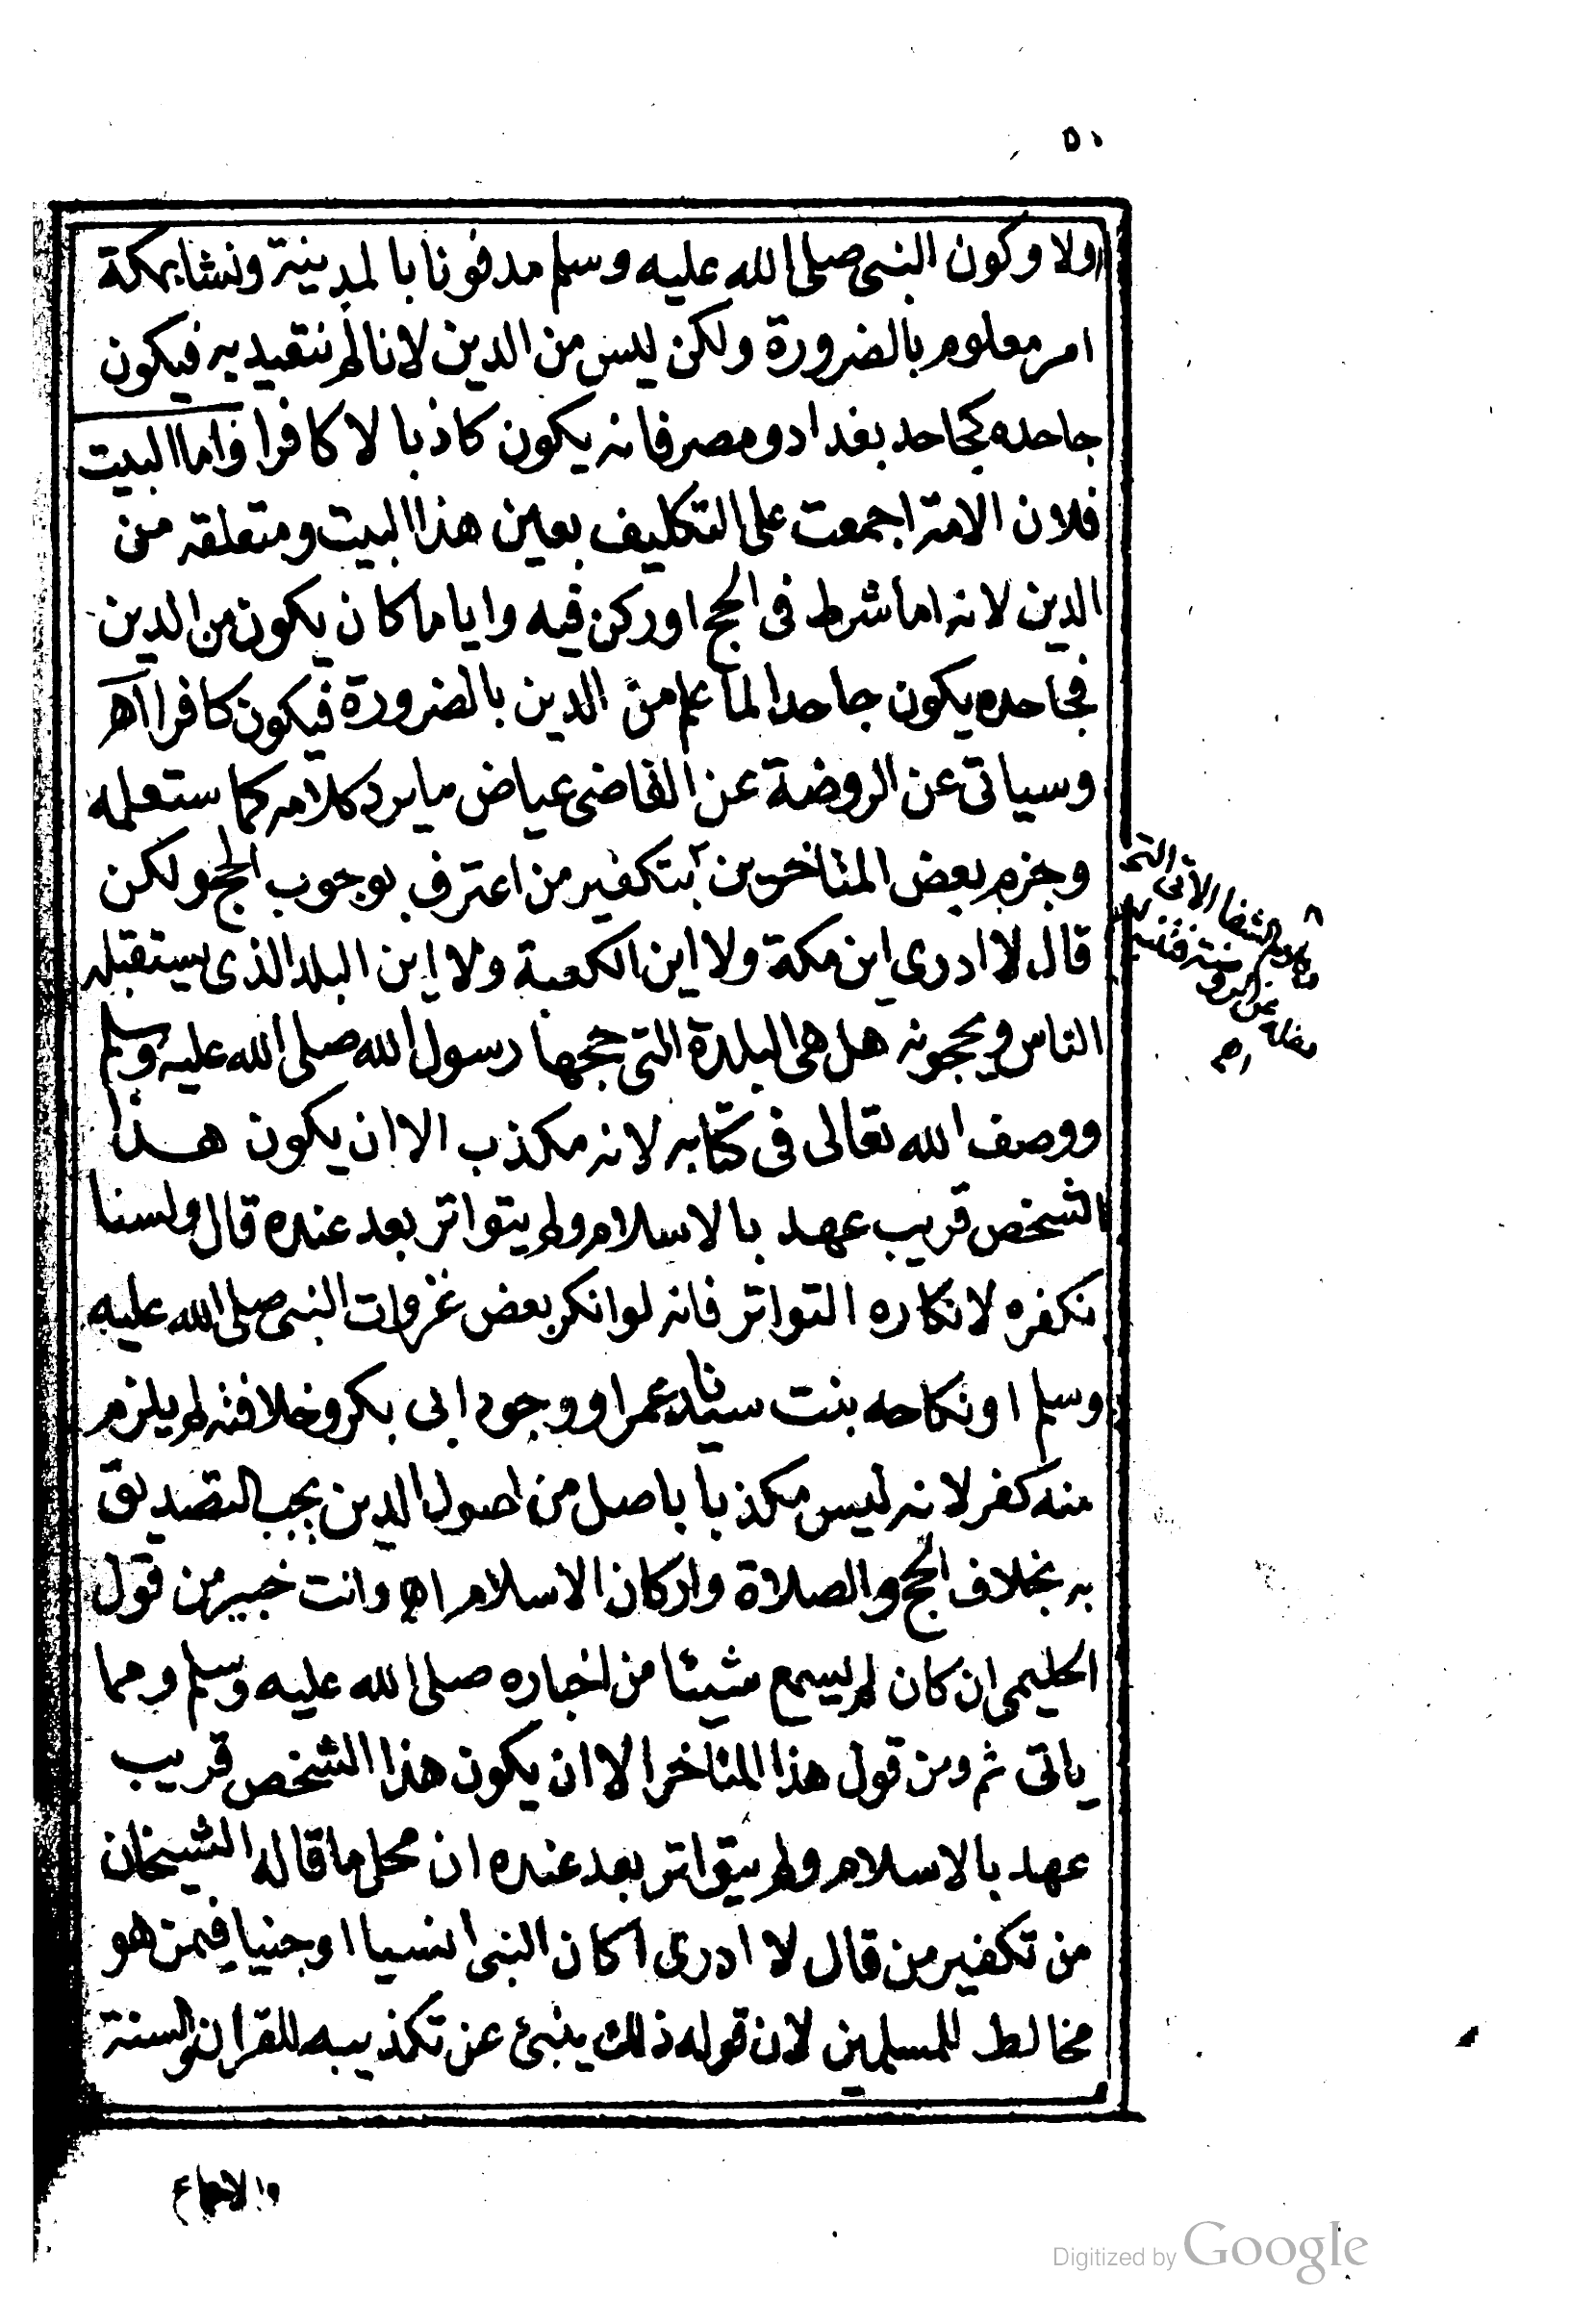 ٥٠
اولا وكون النبى صلى الله عليه وسلم مدفونا بالمدينة ونشا بمكة
امر معلوم بالضرورة ولكن ليس من الدين لانا لم نتقيد به فيكون
جاحده كجاحد بغداد ومصر فانه يكون كاذبا لا كافرا واما البيت
فلان الامة اجمعت على التكليف بعين هذا البيت ومتعلقه من
الدين لانه اما شرط فى الحج او ركن فيه وايا ما كان يكون من الدين
فجاحده يكون جاحدا لما علم من الدين بالضرورة فيكون كافرا اهـ
وسياتى عن الروضة عن القاضى عياض ما يرد كلامه كما ستعلمه
وجزم بعض المتاخرين بتكفير من اعترف بوجوب الحج ولكن
قال لا ادرى اين مكة ولا اين الكعبة ولا اين البلد الذى يستقبله
الناس ويحجونه هل هى البلدة التى حجها رسول الله صلى الله عليه وسلم
ووصف الله تعالى فى كتابه لانه مكذب الا ان يكون هذا
الشخص قريب عهد بالاسلام ولم يتواتر بعد عنده قال ولسنا
نكفره لانكاره التواتر فانه لو انكر بعض غزوات النبى صلى الله عليه
وسلم او نكاحه بنت سيدنا عمر او وجود ابى بكر وخلافته لم يلزم
منه كفر لانه ليس مكذبا باصل من اصول الدين يجب التصديق
به بخلاف الحج والصلاة واركان الاسلام اهـ وانت خبير من قول
الحليمى ان كان لم يسمع شيئا من اخباره صلى الله عليه وسلم ومما
ياتى ثم ومن قول هذا المتاخر الا ان يكون هذا الشخص قريب
عهد بالاسلام ولم يتواتر بعد عنده ان محل ما قاله الشيخان
من تكفير من قال لا ادرى اكان النبى انسيا او جنيا فيمن هو
مخالط للمسلمين لان قوله ذلك ينبئ عن تكذيبه للقران والسنة
والاجماع
الشفا الاتى
اهـ
Digitized by Google